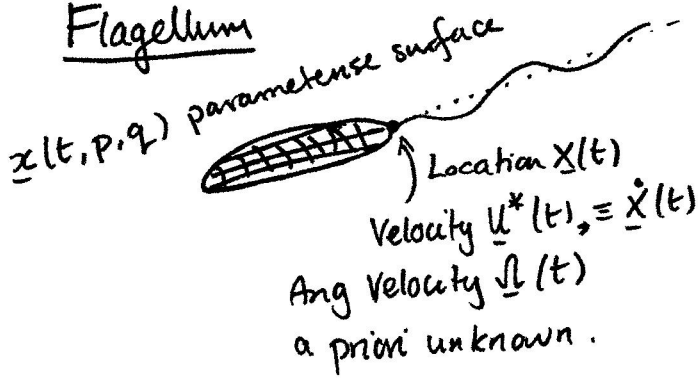 Flagellum
x(t, p, q) parametense surface
Location X(t)
Velocity U*(t), ≡ Ẋ(t)
Ang Velocity Ω(t)
a priori unknown.